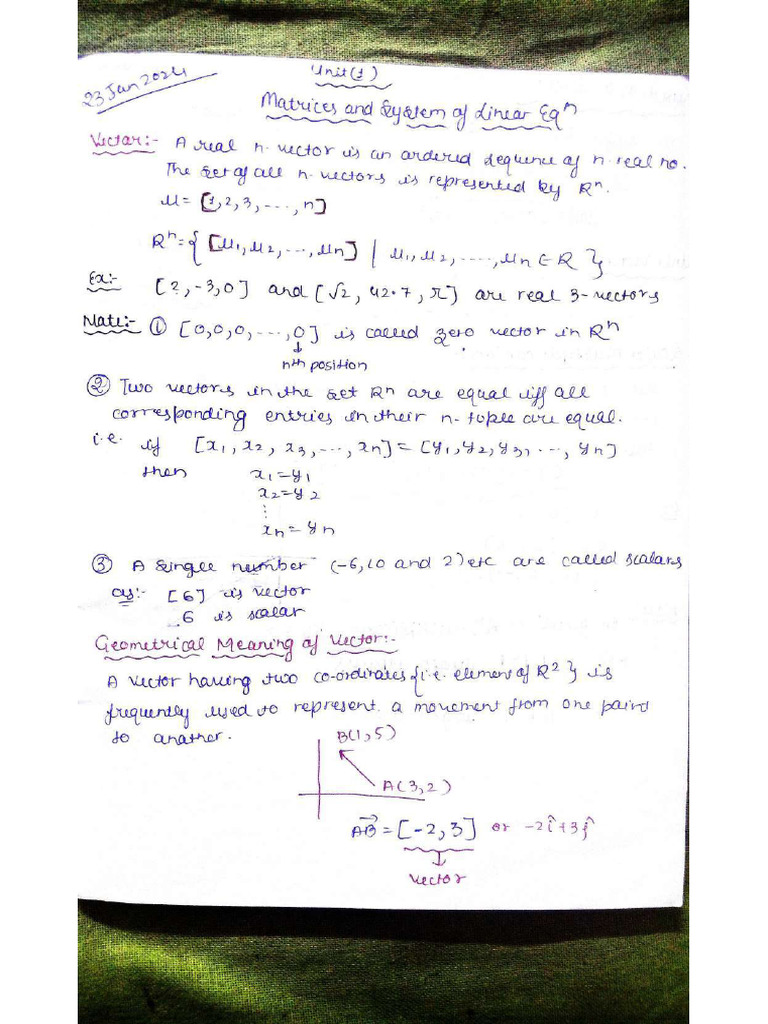 23 Jan 2024
Unit (1)
Matrices and System of Linear Eqⁿ
Vector:- A real n-vector is an ordered sequence of n real no.
The set of all n-vectors is represented by Rⁿ.
u = [1, 2, 3, ..., n]
Rⁿ = { [u₁, u₂, ..., uₙ] | u₁, u₂, ....., uₙ ∈ R }
Ex:- [2, -3, 0] and [√2, 42.7, π] are real 3-vectors
Note:- ① [0, 0, 0, ..., 0] is called zero vector in Rⁿ
↓
nth position
② Two vectors in the set Rⁿ are equal iff all
corresponding entries in their n-tuple are equal.
i.e. if [x₁, x₂, x₃, ..., xₙ] = [y₁, y₂, y₃, ..., yₙ]
then x₁ = y₁
x₂ = y₂
⋮
xₙ = yₙ
③ A single number (-6, 10 and 2) etc are called scalars
as:- [6] is vector
6 is scalar
Geometrical Meaning of Vector:-
A vector having two co-ordinates {i.e. element of R²} is
frequently used to represent a movement from one point
to another.
B(1, 5)
A(3, 2)
AB⃗ = [-2, 3] or -2î + 3ĵ
↓
vector